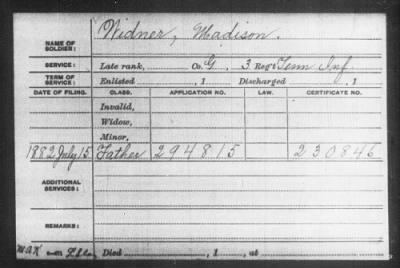 Widner, Madison.
NAME OF SOLDIER:
SERVICE: Late rank, Co. G, 3 Reg't Tenn Inf
TERM OF SERVICE: Enlisted , 1 Discharged , 1
DATE OF FILING. CLASS. APPLICATION NO. LAW. CERTIFICATE NO.
Invalid,
Widow,
Minor,
1882 July 15 Father 294815 230846
ADDITIONAL SERVICES:
REMARKS:
Died , 1 , at